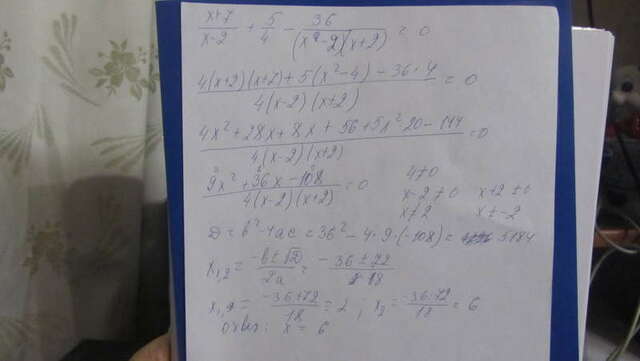 x+7/x-2 + 5/4 - 36/(x-2)(x+2) = 0
4(x+2)(x+7)+5(x²-4)-36·4/4(x-2)(x+2) = 0
4x²+28x+8x+56+5x²-20-144/4(x-2)(x+2) = 0
9x²+36x-108/4(x-2)(x+2) = 0
4≠0
x-2≠0 x+2≠0
x≠2 x≠-2
D=b²-4ac=36²-4·9·(-108)= 5184
x₁,₂ = -b±√D/2a = -36±72/18
x₁,₂ = -36+72/18 = 2 ; x₂ = -36-72/18 = 6
ответ: x = 6